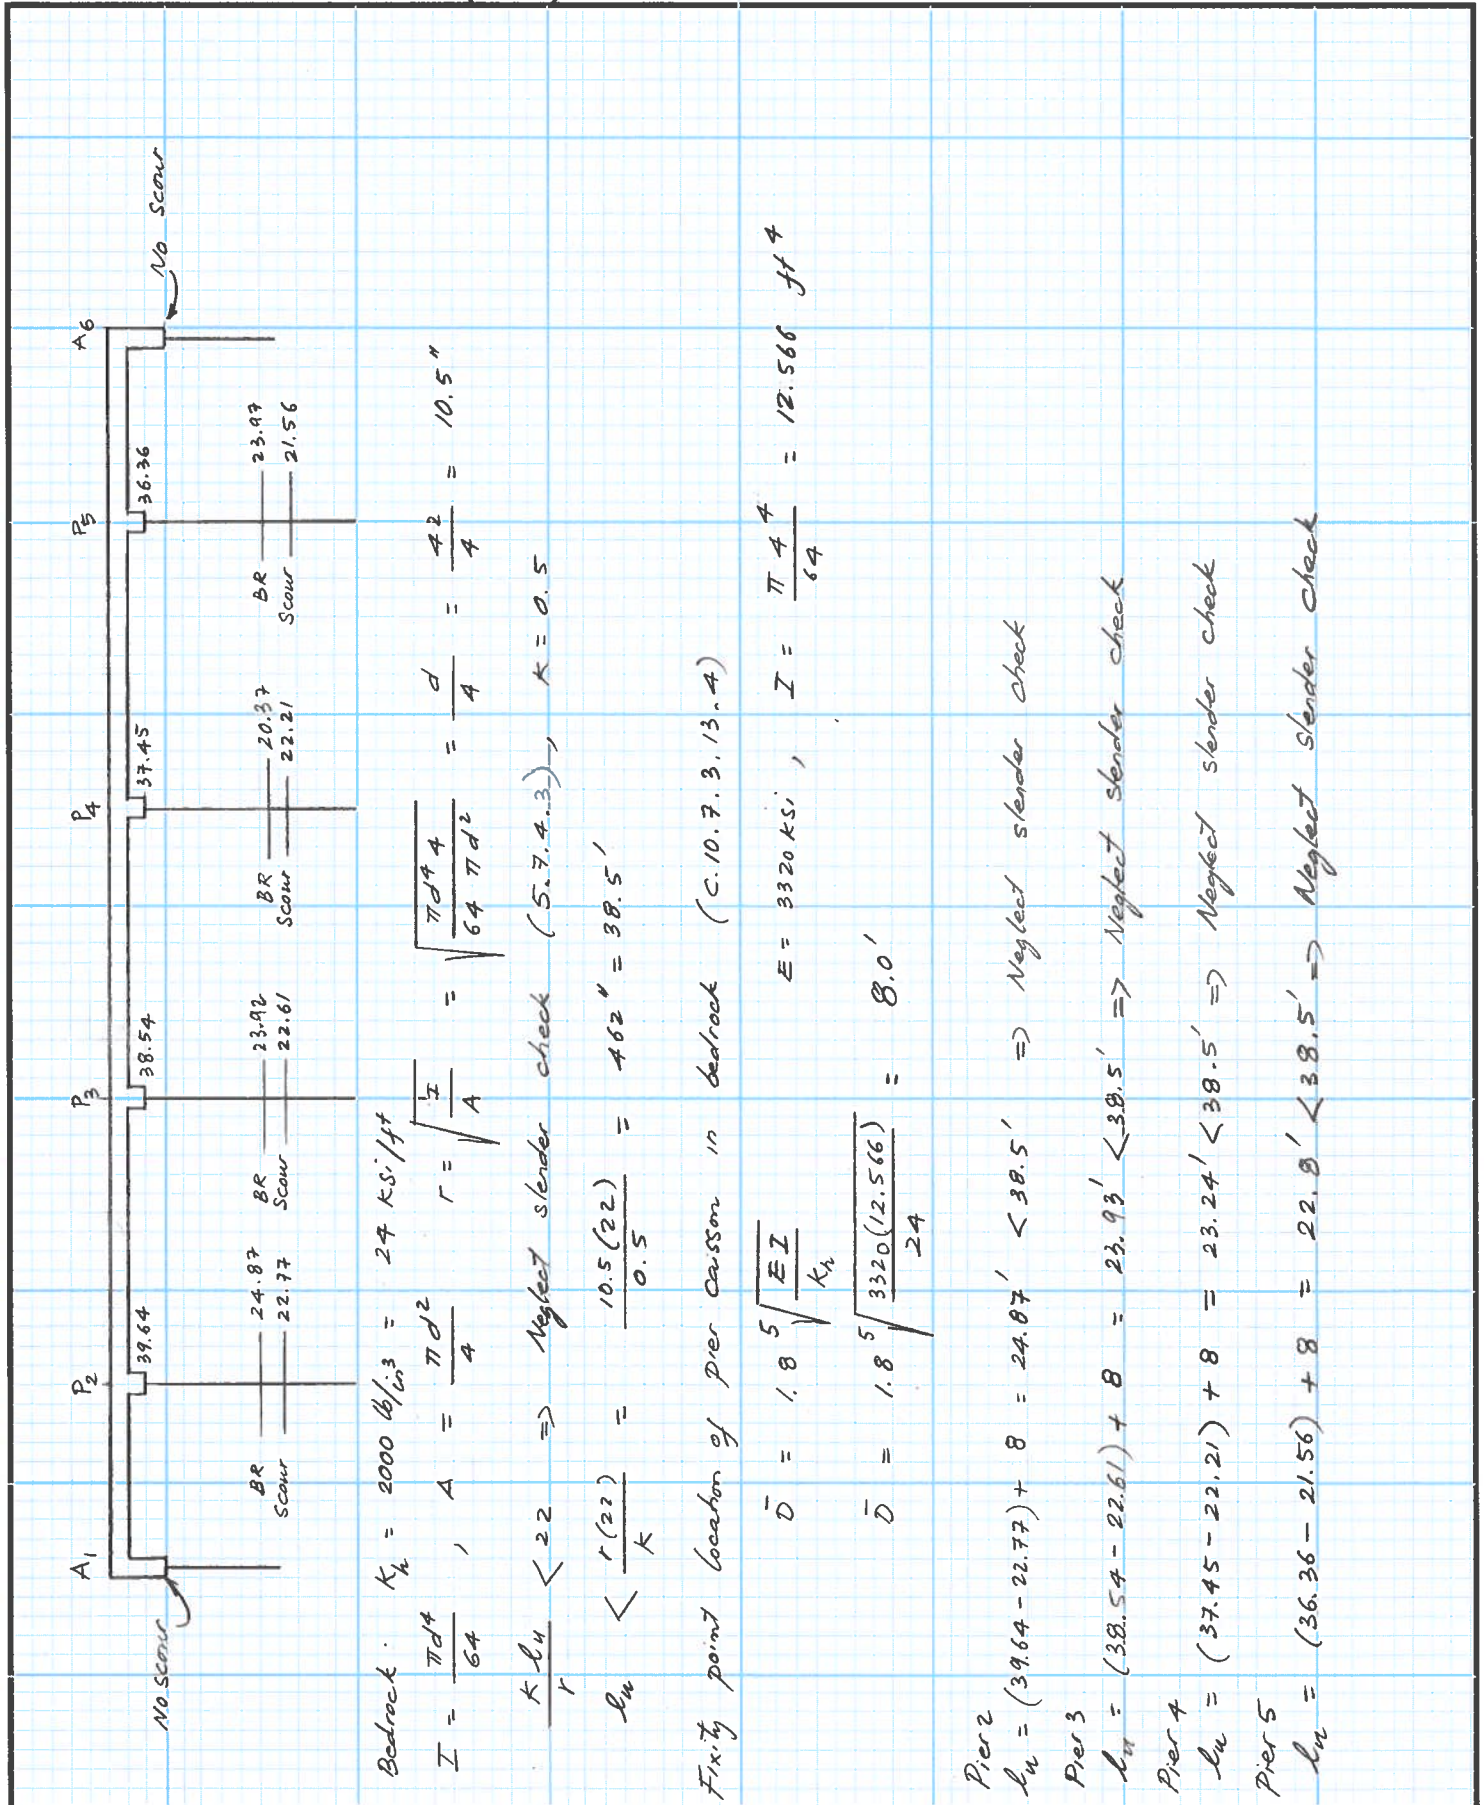 A1 P2 P3 P4 P5 A6
No scour
39.64 38.54 37.45 36.36
No scour
BR 24.87
Scour 22.77
BR 23.92
Scour 22.61
BR 20.37
Scour 22.21
BR 23.97
Scour 21.56
Bedrock: K_h = 2000 lb/in³ = 24 ksi/ft
I = πd⁴/64 , A = πd²/4 r = √(I/A) = √(πd⁴ 4 / 64 πd²) = d/4 = 42/4 = 10.5"
K l_u / r < 22 => Neglect slender check (5.7.4.3), K = 0.5
l_u < r(22)/K = 10.5(22)/0.5 = 462" = 38.5'
Fixity point location of pier caisson in bedrock (C.10.7.3.13.4)
D̄ = 1.8 ⁵√(EI/K_h) E = 3320 ksi , I = π 4⁴/64 = 12.566 ft⁴
D̄ = 1.8 ⁵√(3320(12.566)/24) = 8.0'
Pier 2
l_u = (39.64 - 22.77) + 8 = 24.87' < 38.5' => Neglect slender check
Pier 3
l_u = (38.54 - 22.61) + 8 = 23.93' < 38.5' => Neglect slender check
Pier 4
l_u = (37.45 - 22.21) + 8 = 23.24' < 38.5' => Neglect slender check
Pier 5
l_u = (36.36 - 21.56) + 8 = 22.8' < 38.5' => Neglect slender check